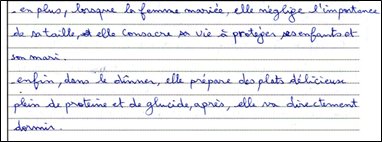 - en plus, lorsque la femme mariée, elle néglige l'importance
de sa taille, et elle consacre sa vie à protéger ses enfants et
son mari.
- enfin, dans le dînner, elle prépare des plats délicieuse
plein de proteine et de glucide, après, elle va directement
dormir.